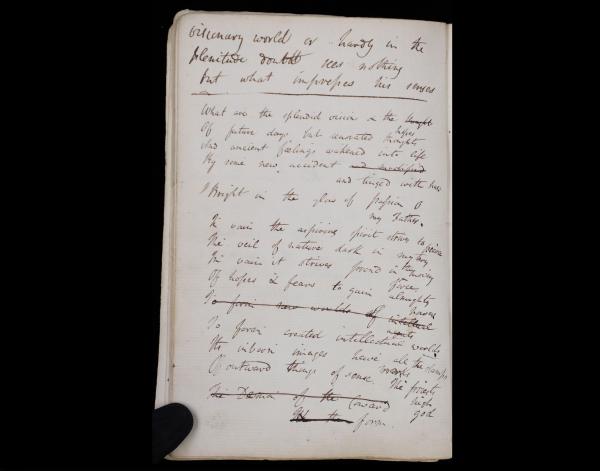 visionary world or hardly in the
plenitude doubt sees nothing
but what impresses his senses
What are the splendid visions & the thought
hopes
Of future days but renovated thoughts
And ancient feelings wakened into life
By some new accident
and tinged with hues
Bright in the glow of passion O
my Father.
In vain the aspiring spirit strives to pierce
The veil of nature dark in mystery
In vain it strives proud in the moving
force
Of hopes & fears to gain almighty
power
To form new worlds of intellectual
To form created intellectual worlds
Its vision images have all the stamps
marks
Of outward things of sense. The priests
high
The Demon of the Coward
god
the form.